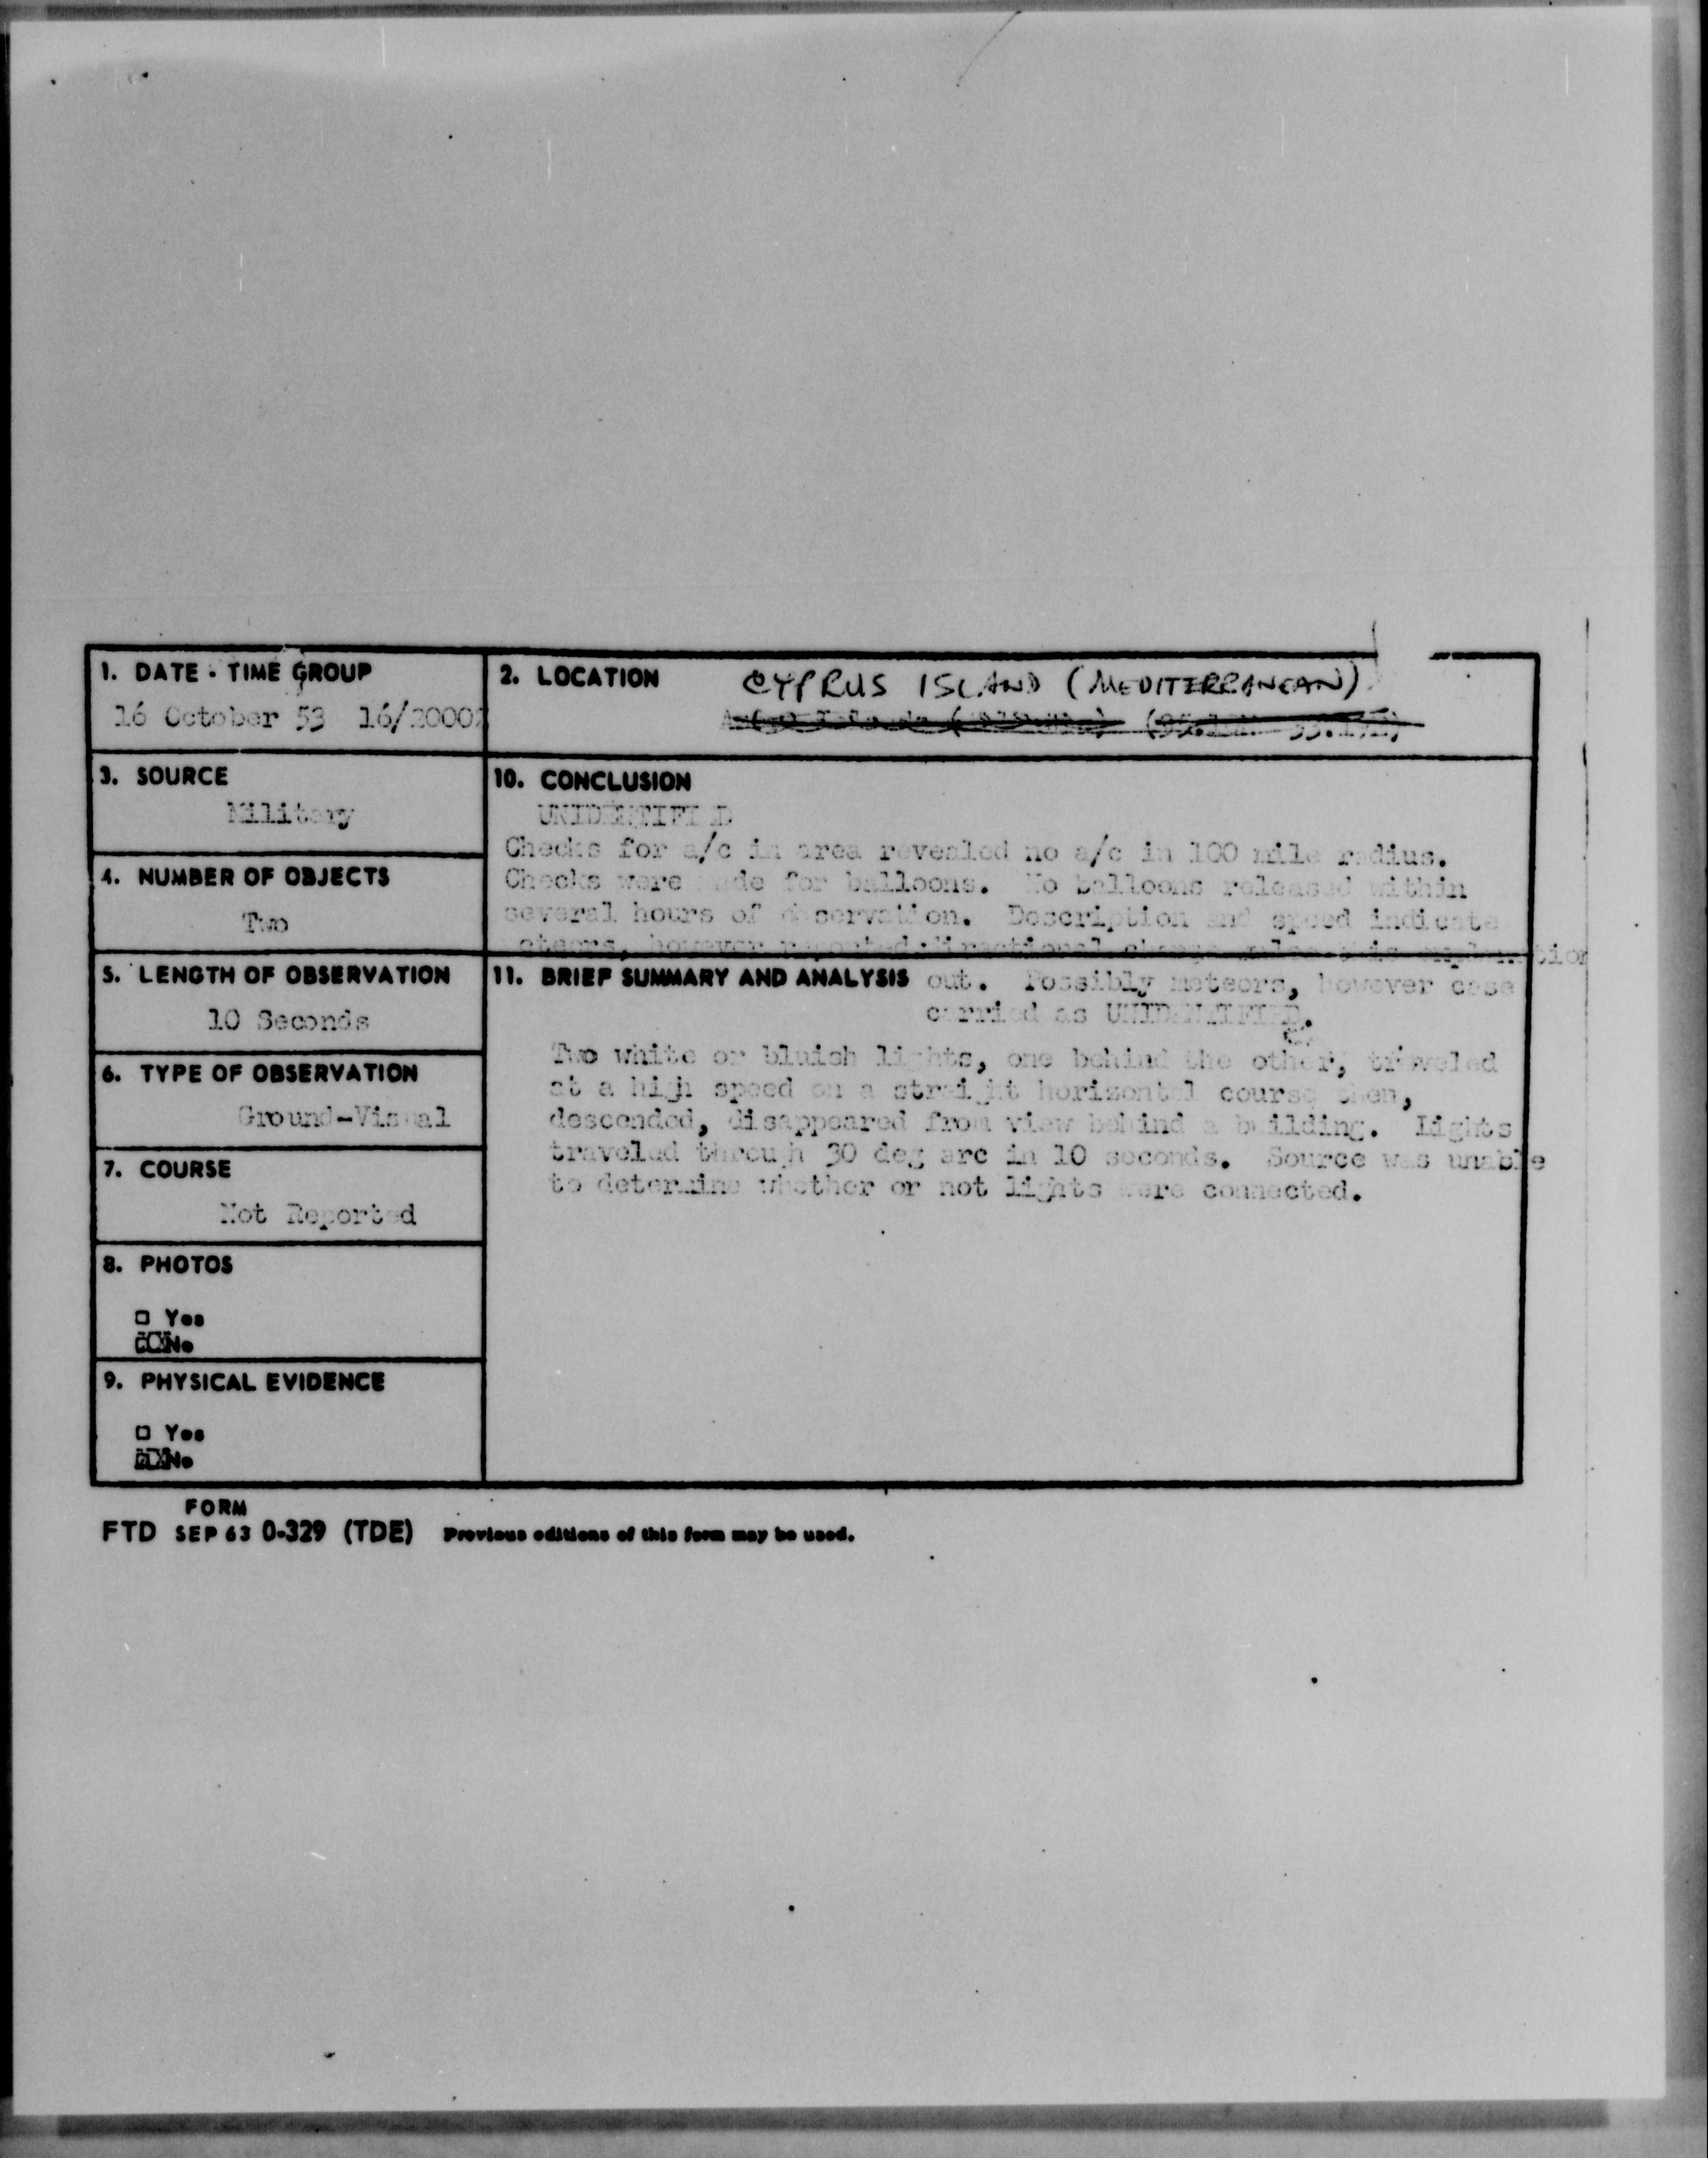 1. DATE - TIME GROUP
16 October 53 16/2000Z
2. LOCATION
CYPRUS ISLAND (MEDITERRANEAN)
3. SOURCE
Military
4. NUMBER OF OBJECTS
Two
5. LENGTH OF OBSERVATION
10 Seconds
6. TYPE OF OBSERVATION
Ground-Visual
7. COURSE
Not Reported
8. PHOTOS
□ Yes
☒ No
9. PHYSICAL EVIDENCE
□ Yes
☒ No
10. CONCLUSION
UNIDENTIFIED
Checks for a/c in area revealed no a/c in 100 mile radius.
Checks were made for balloons. No balloons released within
several hours of observation. Description and speed indicate
meteors, however reported directional change rules this explanation
11. BRIEF SUMMARY AND ANALYSIS out. Possibly meteors, however case
carried as UNIDENTIFIED.
Two white or bluish lights, one behind the other, traveled
at a high speed on a straight horizontal course then,
descended, disappeared from view behind a building. Lights
traveled through 30 deg arc in 10 seconds. Source was unable
to determine whether or not lights were connected.
FORM
FTD SEP 63 0-329 (TDE) Previous editions of this form may be used.